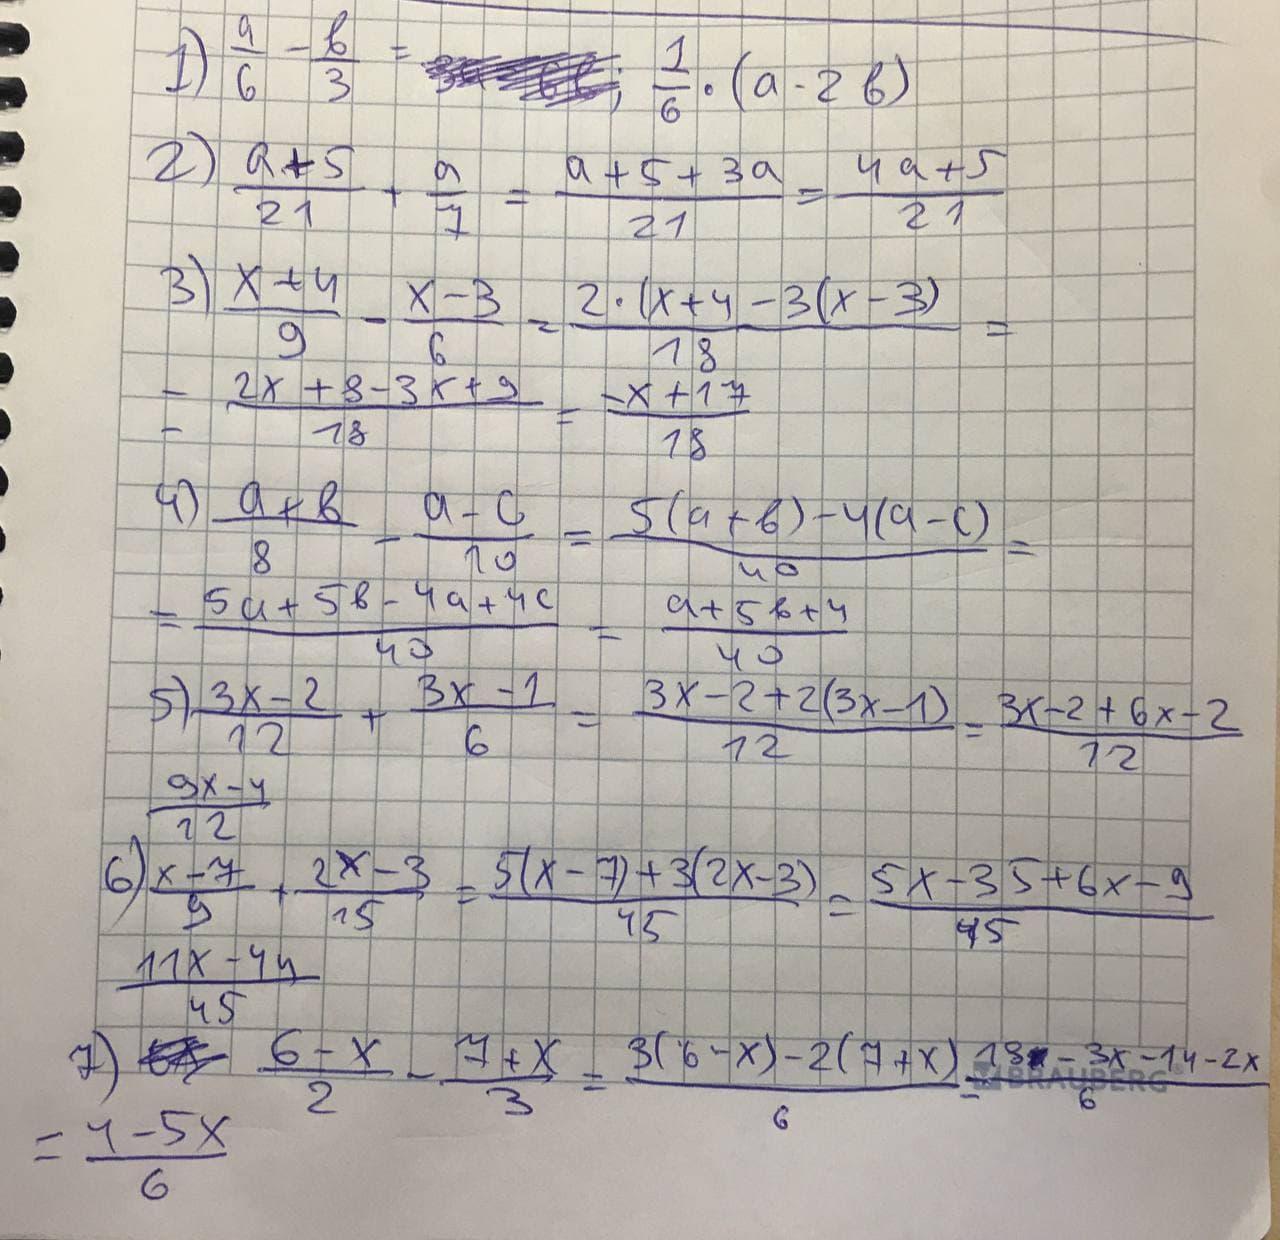 1) a/6 - в/3 = ; 1/6 · (a - 2в)
2) (a+5)/21 + a/7 = (a+5+3a)/21 = (4a+5)/21
3) (x+4)/9 - (x-3)/6 = (2·(x+4-3(x-3))/18 =
= (2x+8-3x+9)/18 = (-x+17)/18
4) (a+в)/8 - (a-c)/10 = (5(a+в)-4(a-c))/40 =
= (5a+5в-4a+4c)/40 = (a+5в+4)/40
5) (3x-2)/12 + (3x-1)/6 = (3x-2+2(3x-1))/12 = (3x-2+6x-2)/12
(9x-4)/12
6) (x-7)/9 + (2x-3)/15 = (5(x-7)+3(2x-3))/45 = (5x-35+6x-9)/45
(11x-44)/45
7) (6-x)/2 - (7+x)/3 = (3(6-x)-2(7+x))/6 = (18-3x-14-2x)/6
BRAUBERG®
= (4-5x)/6